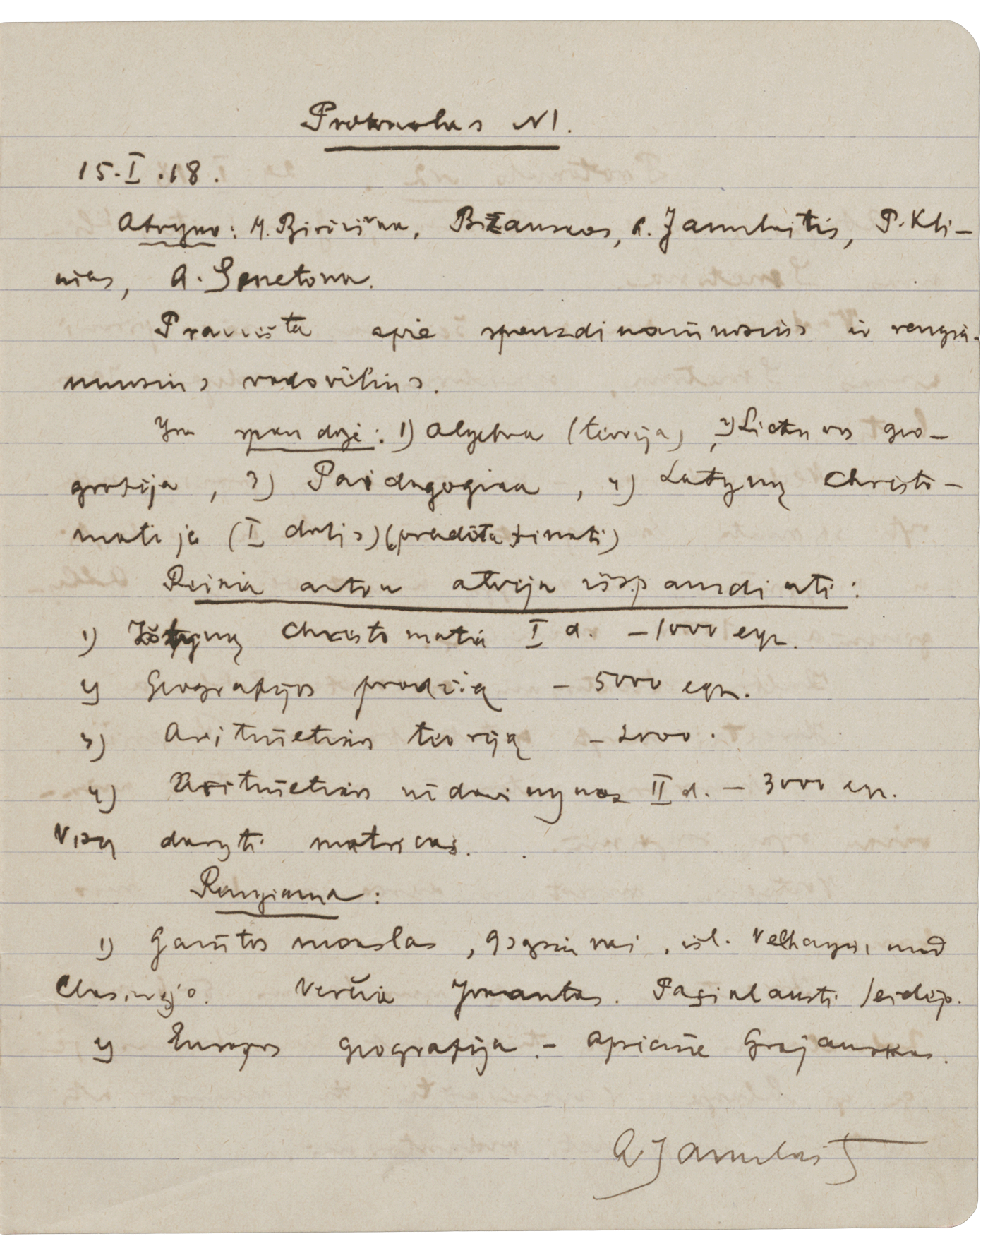 Protokolas N1.
15.I.18.
Atvyko: M. Biržiška, Bizauskas, A. Janulaitis, P. Kli-
mas, A. Smetona.
Pranešta apie spausdinamuosius ir rengia-
muosius vadovėlius.
Yra spaudoje: 1) Algebra (teorija) 2) Lietuvos geo-
grafija, 3) Paidagogika, 4) Latynų Christo-
matija (I dalis) (pradėta rinkti)
Reikia antru atveju išspausdinti:
1) Lotynų Christomatii I d. – 1000 egz.
2) Geografijos pradžią – 5000 egz.
3) Aritmetikos teoriją – 2000.
4) Aritmetikos uždavinynas II d. – 3000 egz.
Visų daryti matricas.
Rengiama:
1) Gamtos mokslas, išl. Velhagen und
Clasingo. Verčia Yvanauskas. Pasiklausti leidėjo.
2) Europos geografija – apsiėmė Grajauskas.
A Janulaitis